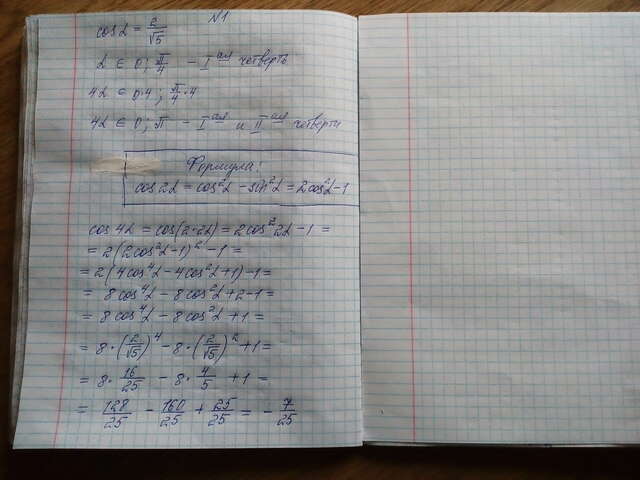 N1
cos α = 2/√5
α ∈ 0; π/4 - I ая четверть
4α ∈ 0·4; π/4·4
4α ∈ 0; π - I ая и II ая четверти
Формула:
cos 2α = cos²α - sin²α = 2cos²α - 1
cos 4α = cos(2·2α) = 2cos²2α - 1 =
= 2(2cos²α - 1)² - 1 =
= 2(4cos⁴α - 4cos²α + 1) - 1 =
= 8cos⁴α - 8cos²α + 2 - 1 =
= 8cos⁴α - 8cos²α + 1 =
= 8·(2/√5)⁴ - 8·(2/√5)² + 1 =
= 8·16/25 - 8·4/5 + 1 =
= 128/25 - 160/25 + 25/25 = - 7/25